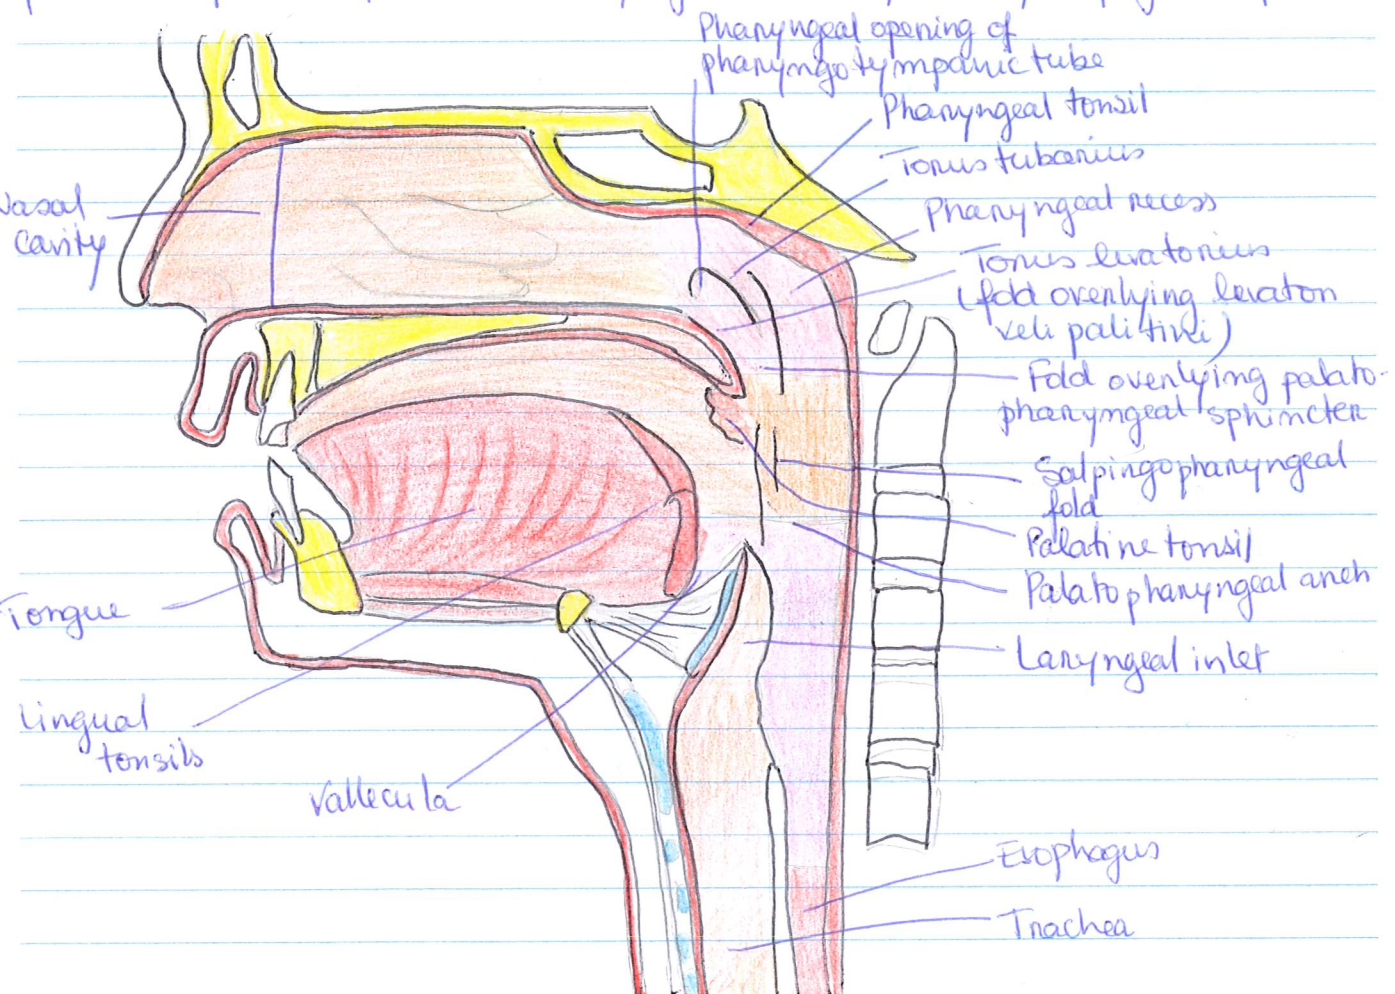 Pharyngeal opening of
pharyngotympanic tube
Pharyngeal tonsil
Torus tubarius
Pharyngeal recess
Torus levatorius
(fold overlying levator
veli palitini)
Fold overlying palato-
pharyngeal sphincter
Salpingopharyngeal
fold
Palatine tonsil
Palatopharyngeal arch
Laryngeal inlet
Esophagus
Trachea
Nasal
Cavity
Tongue
Lingual
tonsils
Vallecula